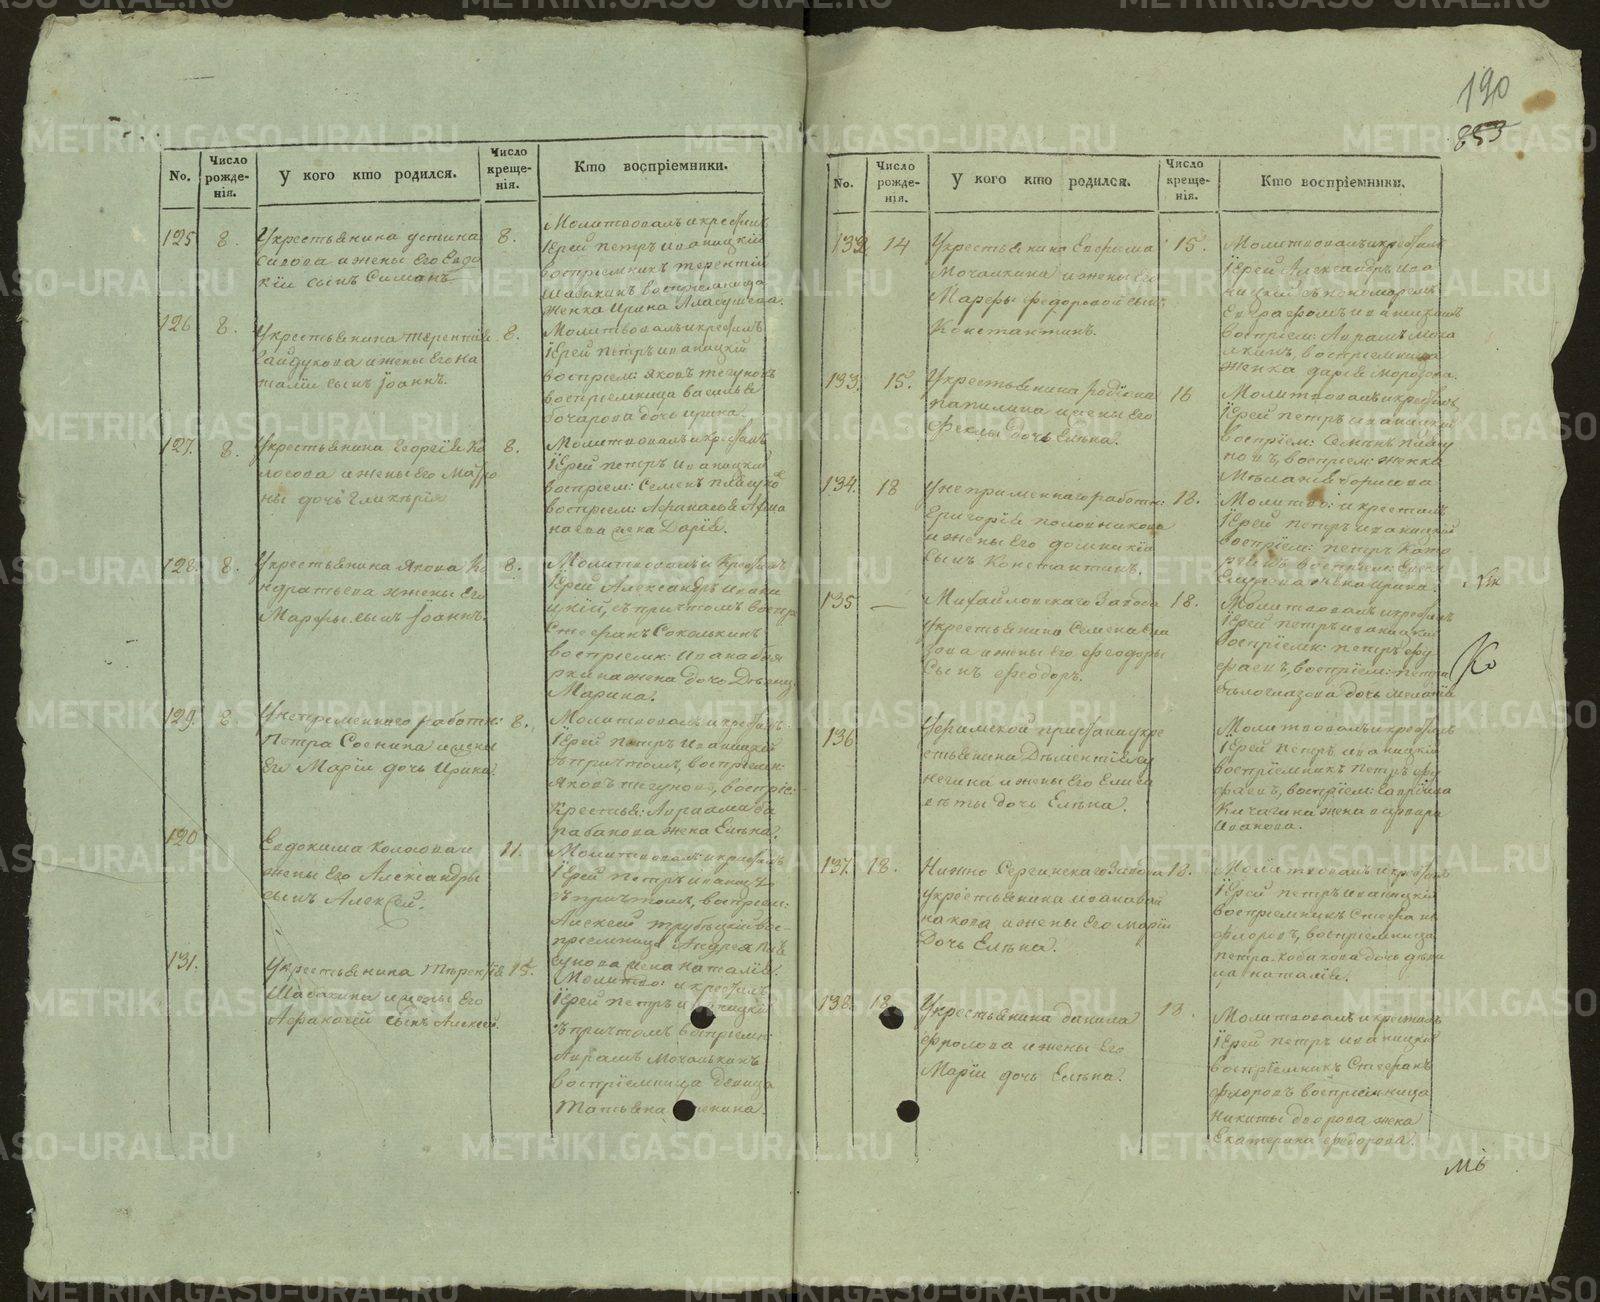 190
853
No.
Число рожде-нія.
У кого кто родился.
Число креще-нія.
Кто воспріемники.
125
8.
Укрестьянина устина
сизова и жены Его Евдо
кіи сынъ Симанъ
8.
Молитвовалъ и крестилъ
Іерей петръ иваницкій
воспріемникъ терентій
Шабакинъ воспріемница
женка Ирина
126
8.
Укрестьянина терентія
Гайдукова и жены Его на
таліи сынъ Іоаннъ.
8.
Молитвовалъ и крестилъ
Іерей петръ иваницкій
воспріем: Яковъ тегуновъ
воспріемница василья
бочарова дочь ирина.
127.
8.
Укрестьянина Георгія Ко
лосова и жены Его Матро
ны дочь Гликерія
8.
Молитвовалъ и крестилъ
Іерей петръ иваницкій
воспріем: Семенъ плясуно
воспріем: Афанасья Афана
наева жена Дарія.
128.
8.
Укрестьянина Якова Ко
ндратьева и жены Его
Марфы сынъ Іоаннъ.
8.
Молитвовалъ и крестилъ
Іерей Александръ ивани
цкій, съ причтомъ воспрі
Стефанъ Соколкинъ
воспріемн:
жена дочь Девица
Марина.
129.
8.
Унепременнаго работн:
Петра Соснина и жены
Его Маріи дочь Ирина.
8.
Молитвовалъ и крестилъ
Іерей Петръ Иваницкій
съ причтомъ, воспріемн:
Яковъ тегуновъ, воспріе:
Крестья: Авраама ба
рабанова жена Елена.
120
Евдокима Колосова и
жены Его Александры
сынъ Алексей.
11.
Молитвовалъ и крестилъ
Іерей Петръ иваницко
съ причтомъ, воспріем:
Алексей трубецкій вос-
пріемница Андрея пля
сунова жена наталія.
131.
Укрестьянина Терентія
Шабакина и жены Его
Афанасіи сынъ Алексей.
15.
Молитво: и крестилъ
Іерей петръ иваницкій
съ причтомъ воспріемн:
Аврамъ Мочалкинъ
воспріемница девица
Татьяна
No.
Число рожде-нія.
У кого кто родился.
Число креще-нія.
Кто воспріемники.
132
14
Укрестьянина Ефима
Мочалкина и жены Его
Марфы федоровой сынъ
Константинъ.
15.
Молитвовалъ и крестилъ
Іерей Александръ ива
ницкій съ пономаремъ
Евграфомъ иваницкимъ
воспріем: Аврамъ моча
лкинъ, воспріемница
женка дарія Морозова.
133.
15.
Укрестьянина родіона
папилина и жены Его
феклы дочь Елена.
16
Молитвовалъ и крестилъ
Іерей петръ иваницкій
воспріем: Семенъ плясу
новъ, воспріем: женка
Меланія борисова
134.
18
Унепременнаго работн:
Григорія половникова
и жены Его домникіи
сынъ Константинъ.
18.
Молитво: и крестилъ
Іерей петръ иваницкій
воспріем: петръ
135
—
Михайловскаго Завода
укрестьянина Семена
зова и жены Его феодоры
Сынъ феодоръ.
18.
Молитвовалъ и крестилъ
Іерей петръ иваницкій
воспріемн: петръ фу
фаевъ, воспріем: петра
белоглазова дочь меланія
Ко
136
Уфимской пристани укре
стьянина Дементія
нечина и жены Его Елиса
веты дочь Елена.
Молитвовалъ и крестилъ
Іерей петръ иваницкій
воспріемникъ петръ фу
фаевъ, воспріем: гаврила
Кичагина жена варвара
иванова.
137.
18.
Нижно Сергинскаго Завода
укрестьянина ивана
накова и жены Его Маріи
Дочь Елена.
18.
Молитвовалъ и крестилъ
Іерей петръ иваницкій
воспріемникъ Стефанъ
флоровъ, воспріемница
петра Кобакова дочь деви
ца наталія.
138.
18
Укрестьянина данила
фролова и жены Его
Маріи дочь Елена.
18.
Молитвовалъ и крестилъ
Іерей петръ иваницкій
воспріемникъ Стефанъ
флоровъ воспріемница
никиты дворова жена
Екатерина федорова.
METRIKI.GASO-URAL.RU